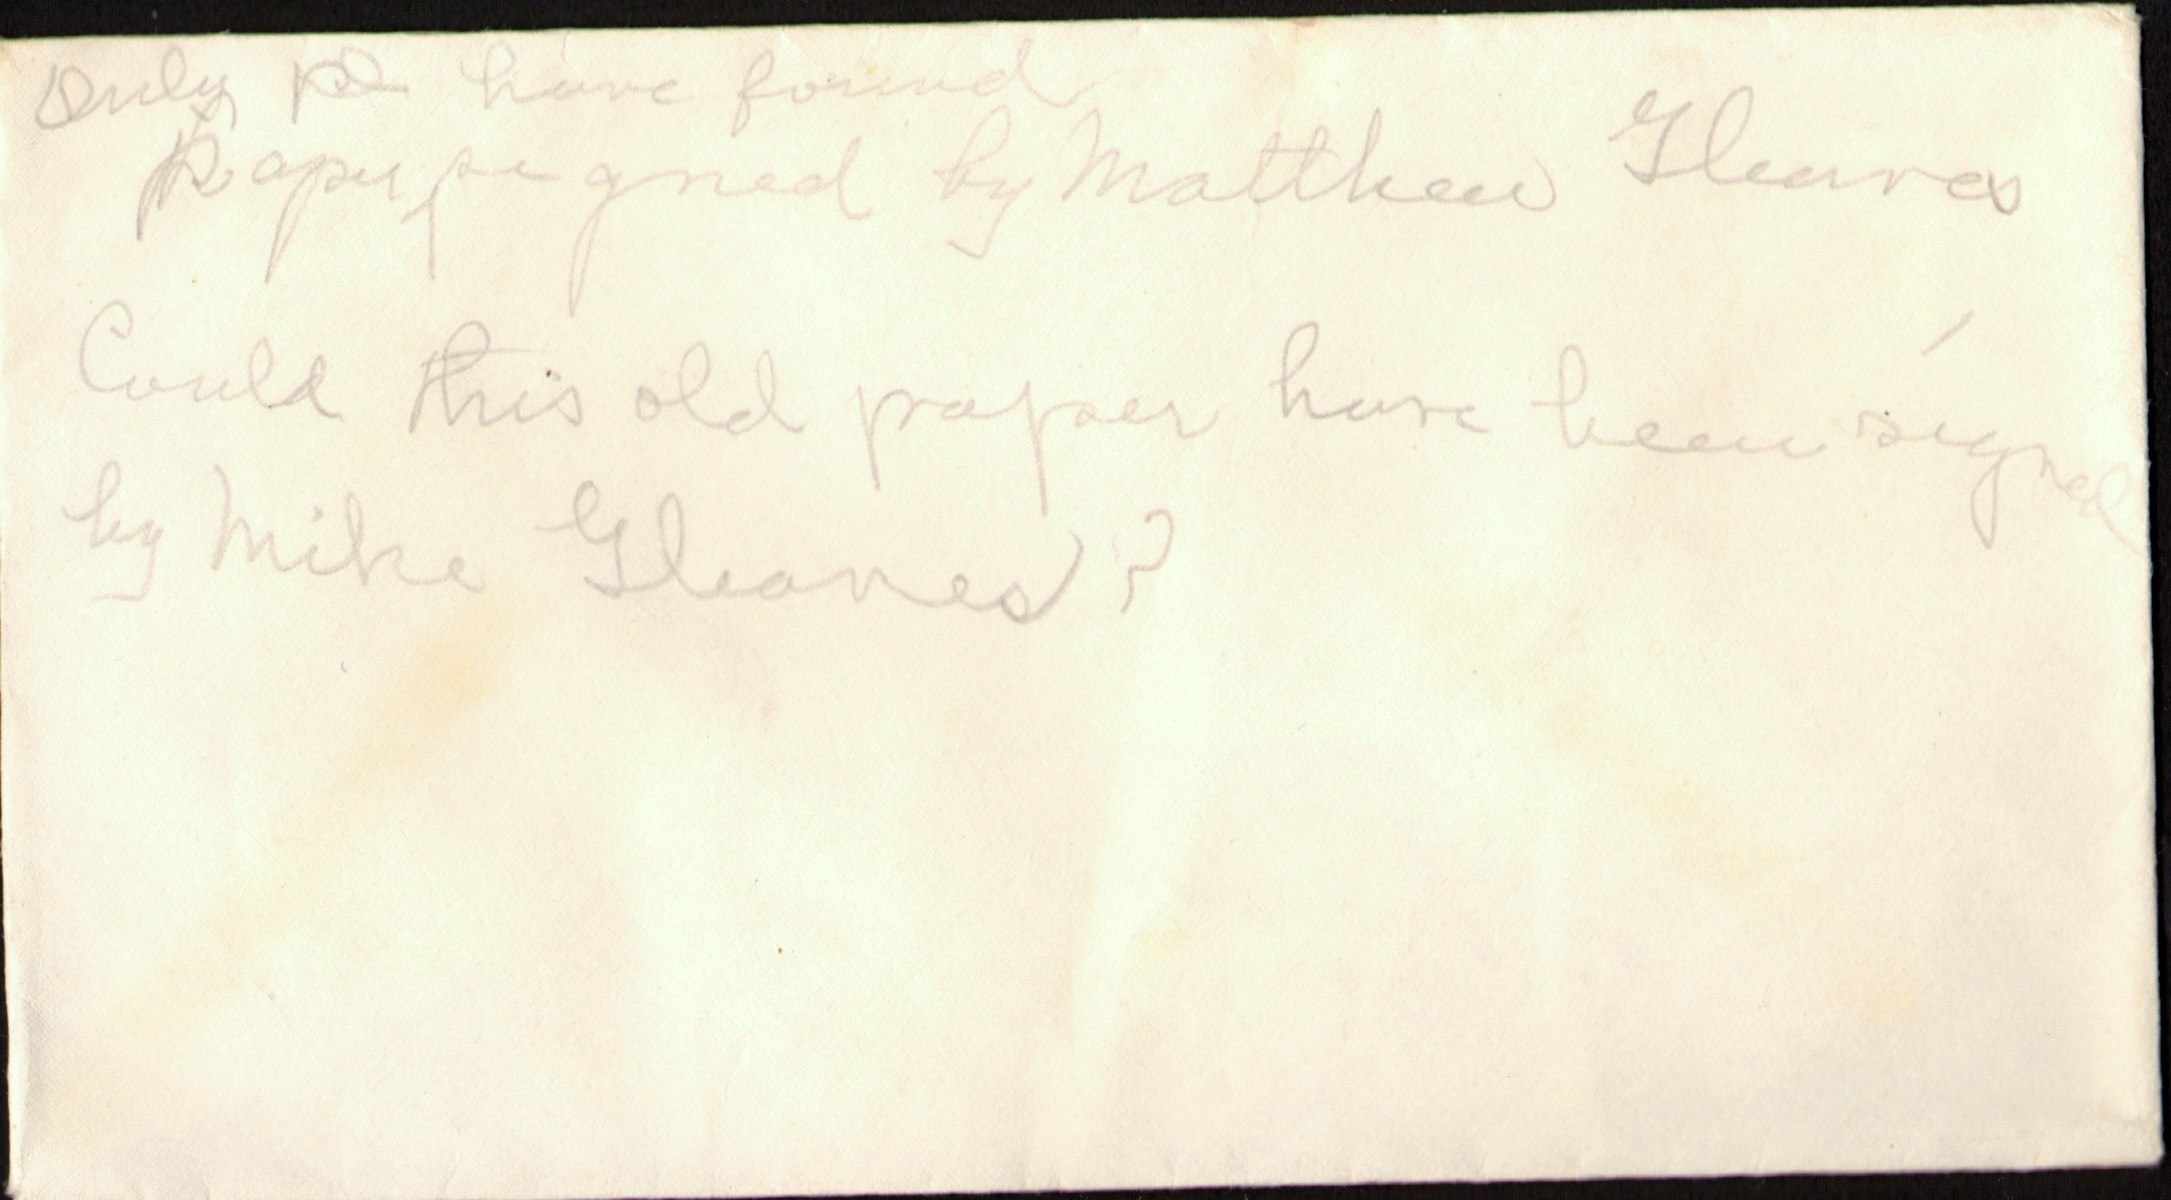 Only I have found
Paper signed by Matthew Gleaves
Could this old paper have been signed
by Mike Gleaves?